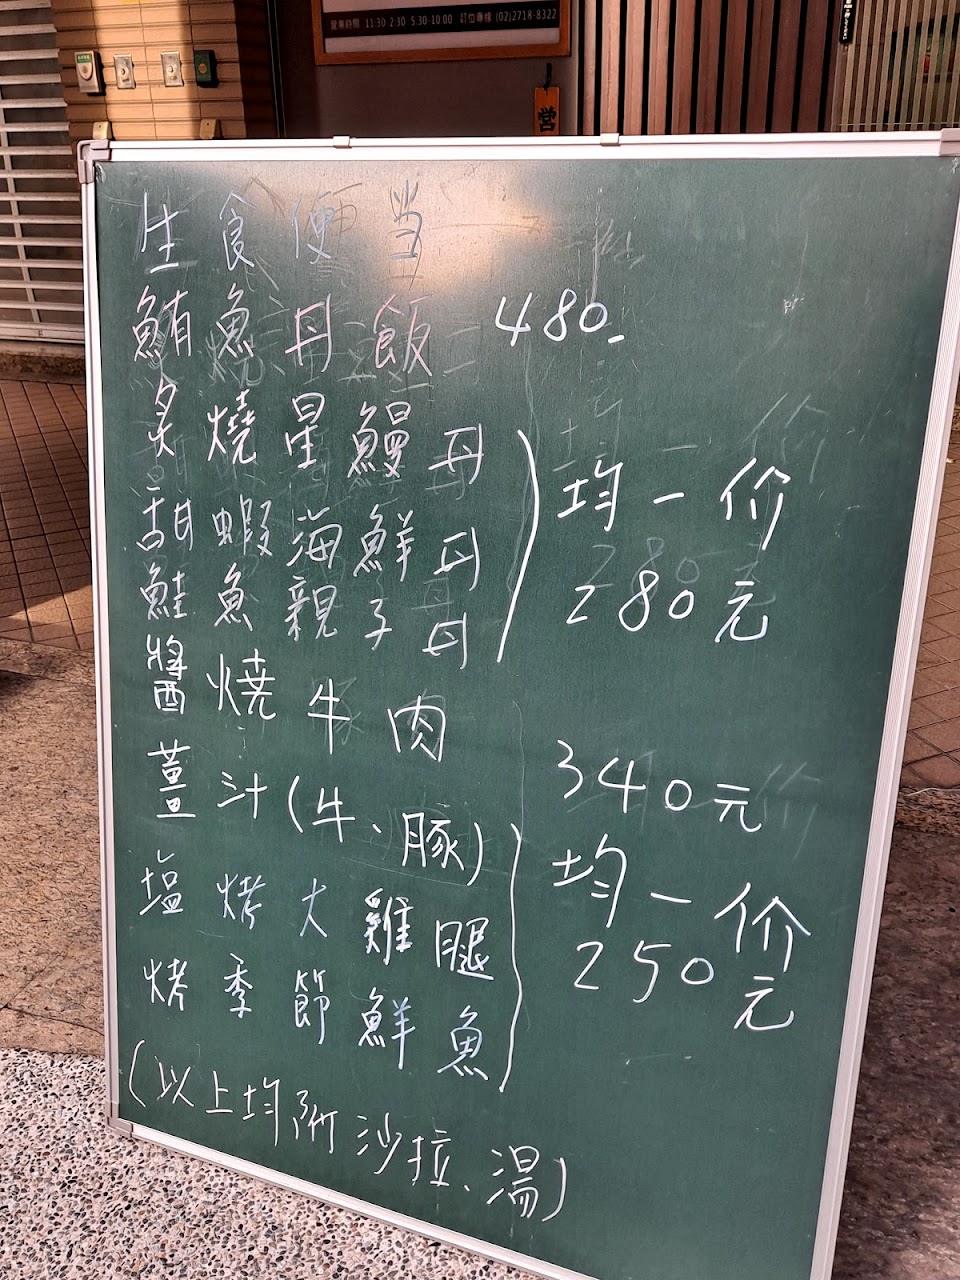 營業時間 11:30-2:30 5:30-10:00 訂位專線 (02)2718-8322
營
生食便当
鮪魚丹飯 480.
炙燒星鰻丹
甜蝦海鮮丹
鮭魚親子丹
均一价
280元
醬燒牛肉 340元
薑汁(牛、豚)
塩烤大雞腿
烤季節鮮魚
均一价
250元
(以上均附沙拉、湯)